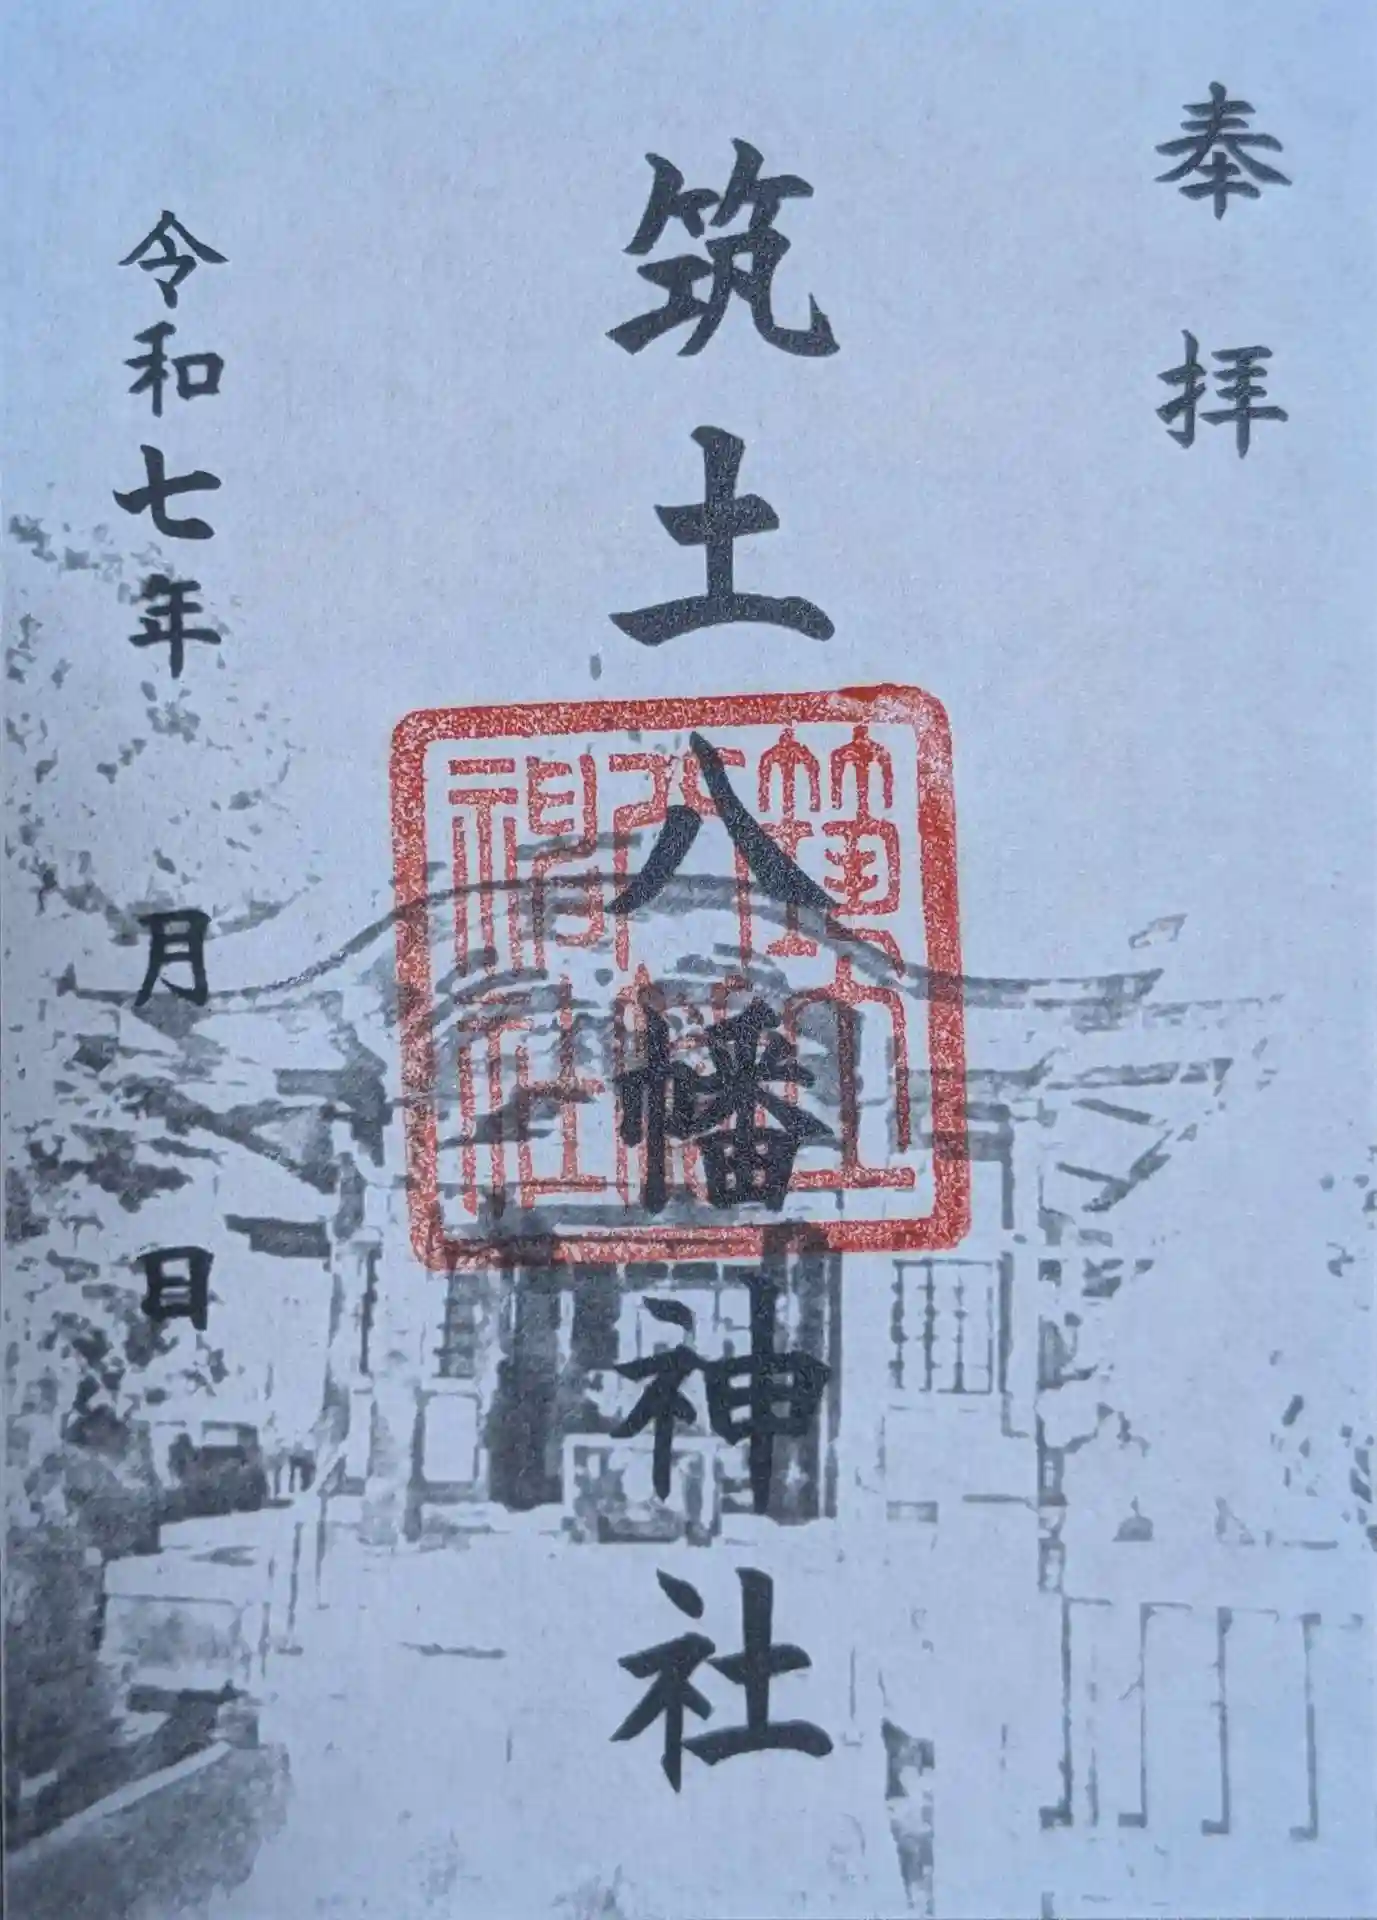 奉拝
筑土八幡神社
筑土八幡神社
令和七年 月 日